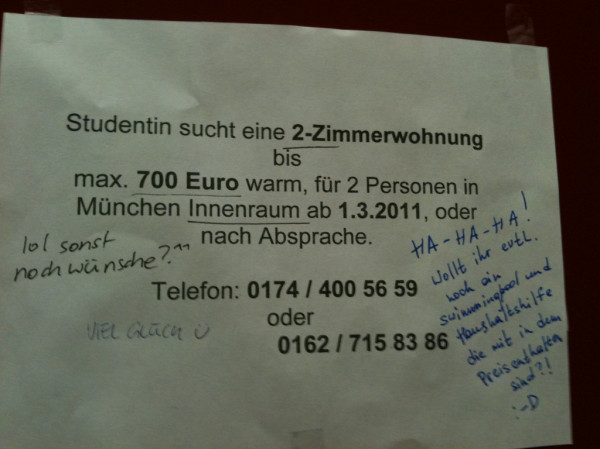 Studentin sucht eine 2-Zimmerwohnung
bis
max. 700 Euro warm, für 2 Personen in
München Innenraum ab 1.3.2011, oder
nach Absprache.
Telefon: 0174 / 400 56 59
oder
0162 / 715 83 86
lol sonst
noch wünsche?^^
VIEL GLÜCK Ü
HA-HA-HA!
Wollt ihr evtl.
noch ein
swimmingpool und
Haushaltshilfe
die mit in dem
Preis enthalten
sind?!
:-D